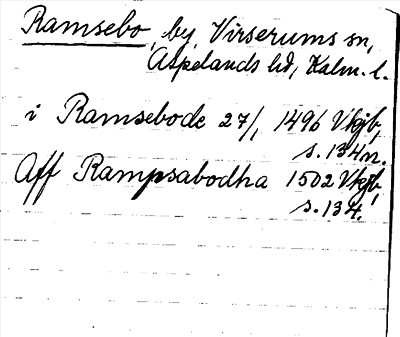 Ramsebo, by, Virserums sn,
Aspelands hd, Kalm. l.
i Ramsebode 27/1 1496 Vkjb,
s. 134 n.
Aff Rampsabodha 1502 Vkjb,
s. 134.